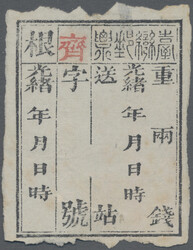 臺灣郵票
重 兩 錢
光緒 年 月 日 時
送 站
齊
字 號
根
光緒 年 月 日 時